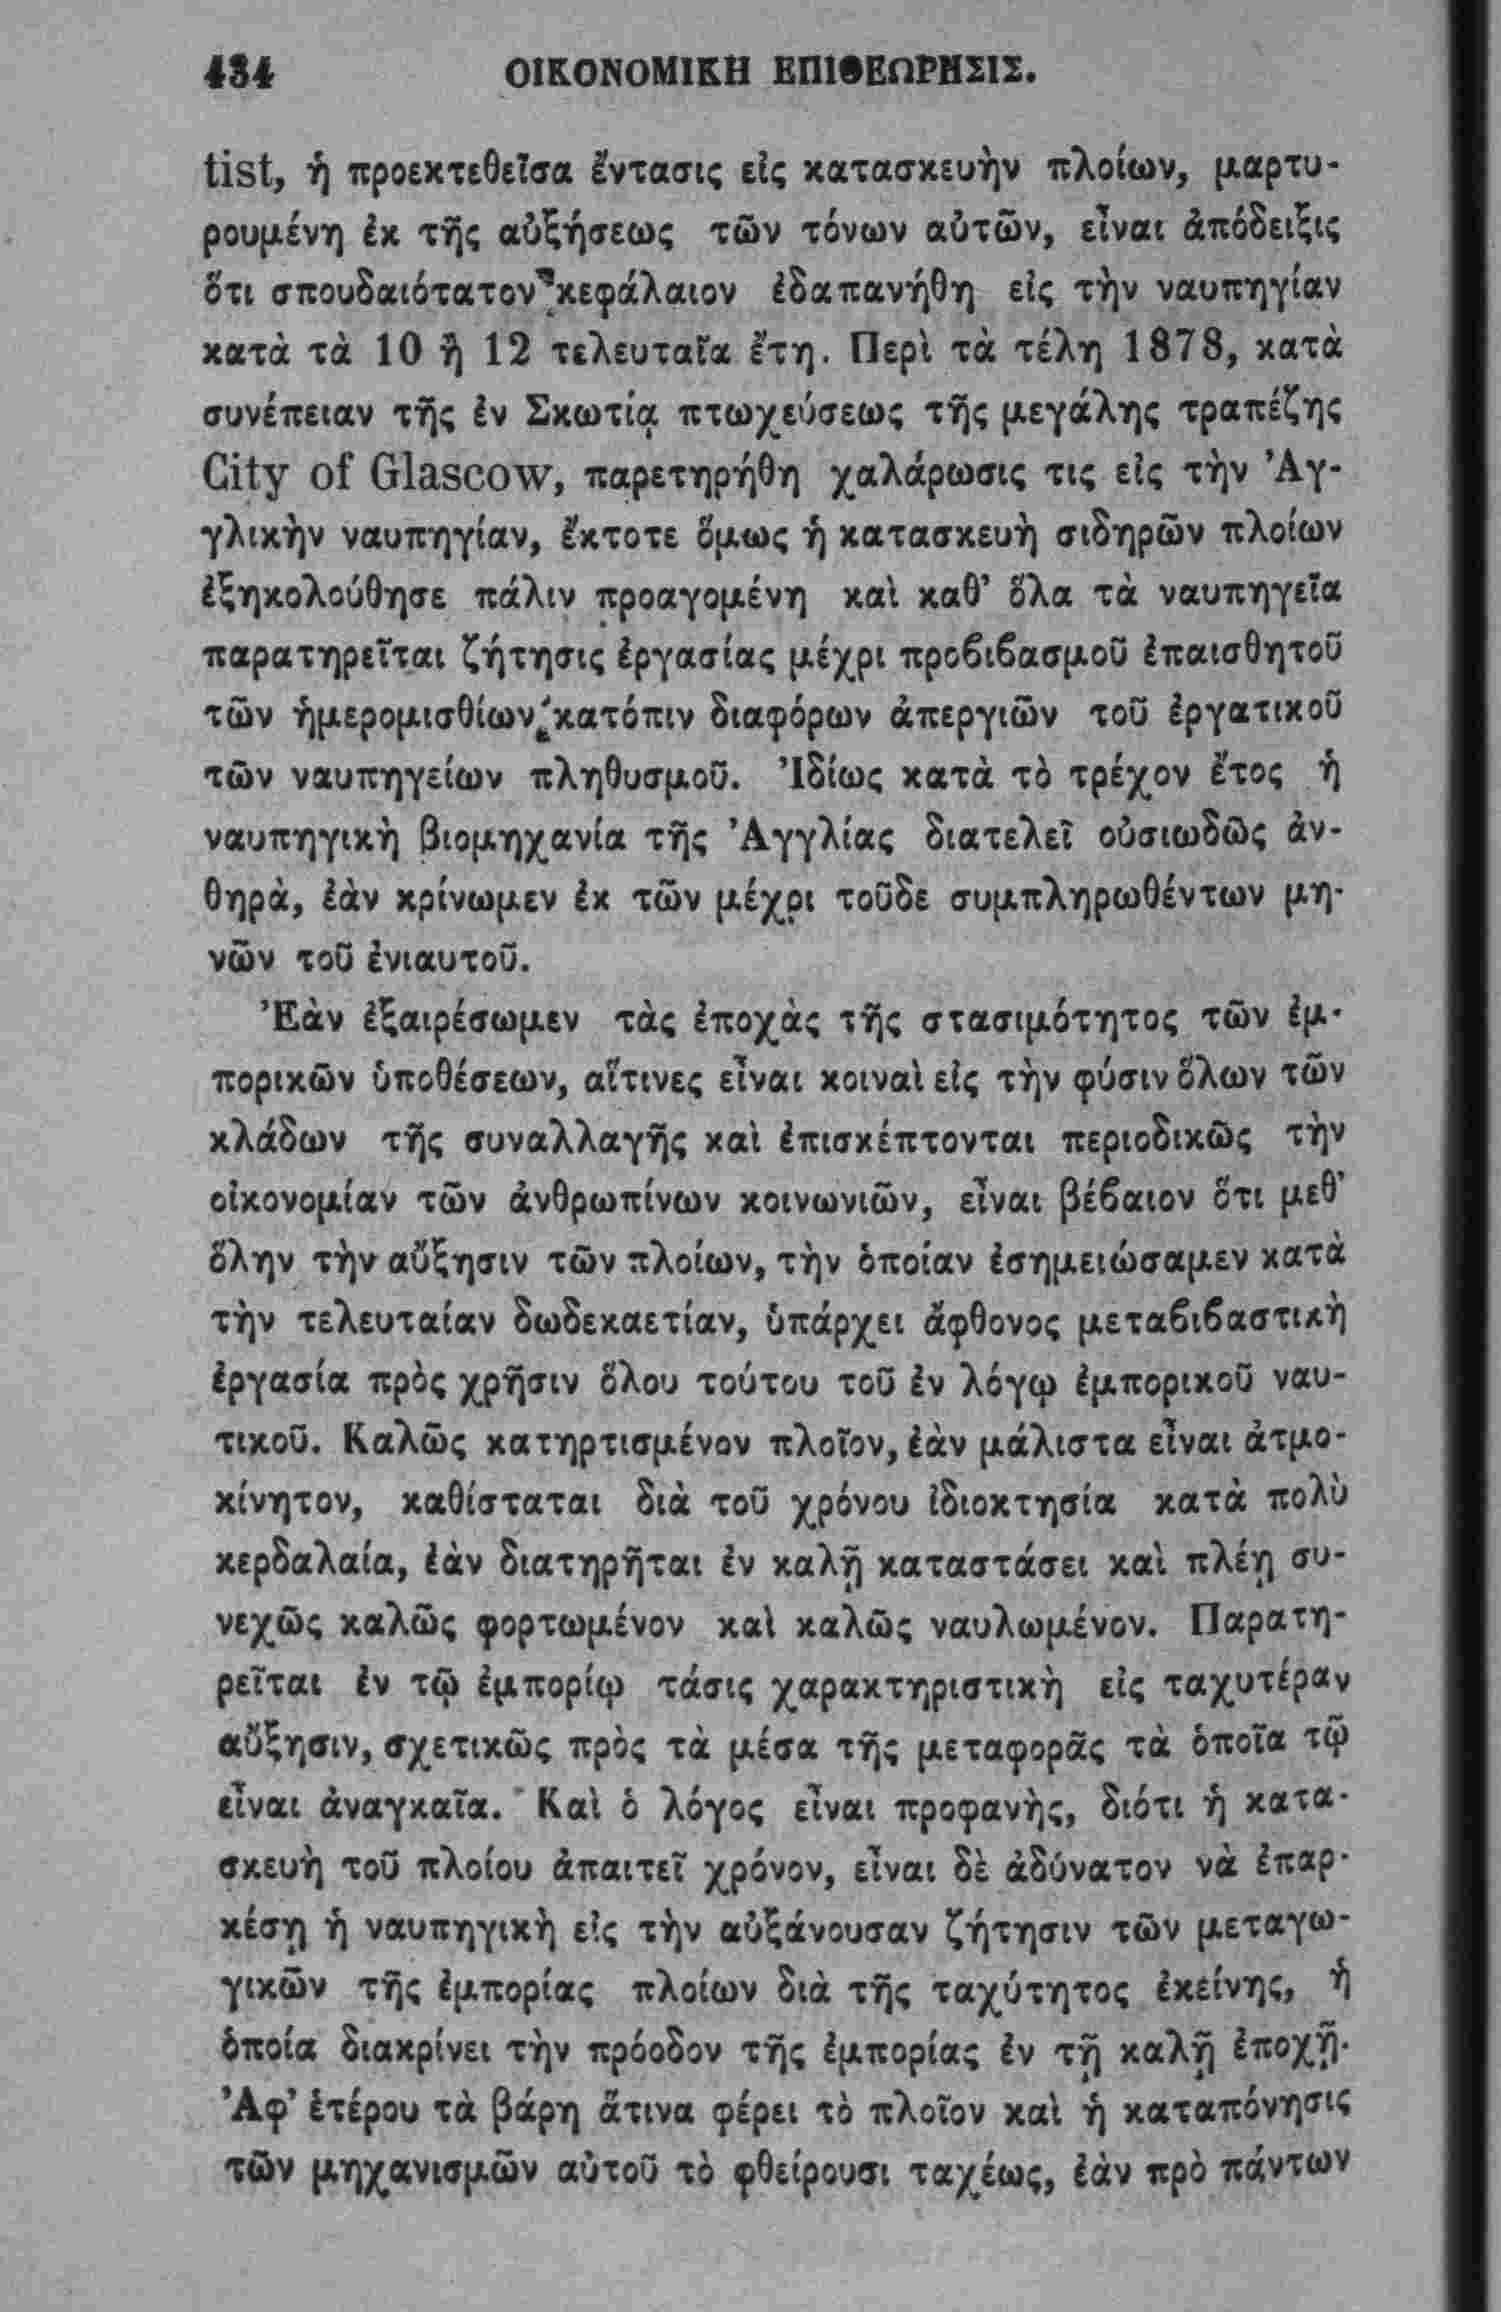 434 ΟΙΚΟΝΟΜΙΚΗ ΕΠΙΘΕΩΡΗΣΙΣ.
tist, ἡ προεκτεθεῖσα ἔντασις εἰς κατασκευὴν πλοίων, μαρτυ-
ρουμένη ἐκ τῆς αὐξήσεως τῶν τόνων αὐτῶν, εἶναι ἀπόδειξις
ὅτι σπουδαιότατον κεφάλαιον ἐδαπανήθη εἰς τὴν ναυπηγίαν
κατὰ τὰ 10 ἢ 12 τελευταῖα ἔτη. Περὶ τὰ τέλη 1878, κατὰ
συνέπειαν τῆς ἐν Σκωτίᾳ πτωχεύσεως τῆς μεγάλης τραπέζης
City of Glascow, παρετηρήθη χαλάρωσις τις εἰς τὴν Ἀγ-
γλικὴν ναυπηγίαν, ἔκτοτε ὅμως ἡ κατασκευὴ σιδηρῶν πλοίων
ἐξηκολούθησε πάλιν προαγομένη καὶ καθ’ ὅλα τὰ ναυπηγεῖα
παρατηρεῖται ζήτησις ἐργασίας μέχρι προϐιϐασμοῦ ἐπαισθητοῦ
τῶν ἡμερομισθίων κατόπιν διαφόρων ἀπεργιῶν τοῦ ἐργατικοῦ
τῶν ναυπηγείων πληθυσμοῦ. Ἰδίως κατὰ τὸ τρέχον ἔτος ἡ
ναυπηγικὴ βιομηχανία τῆς Ἀγγλίας διατελεῖ οὐσιωδῶς ἀν-
θηρὰ, ἐὰν κρίνωμεν ἐκ τῶν μέχρι τοῦδε συμπληρωθέντων μη-
νῶν τοῦ ἐνιαυτοῦ.
Ἐὰν ἐξαιρέσωμεν τὰς ἐποχὰς τῆς στασιμότητος τῶν ἐμ-
πορικῶν ὑποθέσεων, αἵτινες εἶναι κοιναὶ εἰς τὴν φύσιν ὅλων τῶν
κλάδων τῆς συναλλαγῆς καὶ ἐπισκέπτονται περιοδικῶς τὴν
οἰκονομίαν τῶν ἀνθρωπίνων κοινωνιῶν, εἶναι βέϐαιον ὅτι μεθ’
ὅλην τὴν αὔξησιν τῶν πλοίων, τὴν ὁποίαν ἐσημειώσαμεν κατὰ
τὴν τελευταίαν δωδεκαετίαν, ὑπάρχει ἄφθονος μεταϐιϐαστικὴ
ἐργασία πρὸς χρῆσιν ὅλου τούτου τοῦ ἐν λόγῳ ἐμπορικοῦ ναυ-
τικοῦ. Καλῶς κατηρτισμένον πλοῖον, ἐὰν μάλιστα εἶναι ἀτμο-
κίνητον, καθίσταται διὰ τοῦ χρόνου ἰδιοκτησία κατὰ πολὺ
κερδαλαία, ἐὰν διατηρῆται ἐν καλῇ καταστάσει καὶ πλέῃ συ-
νεχῶς καλῶς φορτωμένον καὶ καλῶς ναυλωμένον. Παρατη-
ρεῖται ἐν τῷ ἐμπορίῳ τάσις χαρακτηριστικὴ εἰς ταχυτέραν
αὔξησιν, σχετικῶς πρὸς τὰ μέσα τῆς μεταφορᾶς τὰ ὁποῖα τῷ
εἶναι ἀναγκαῖα. Καὶ ὁ λόγος εἶναι προφανὴς, διότι ἡ κατα-
σκευὴ τοῦ πλοίου ἀπαιτεῖ χρόνον, εἶναι δὲ ἀδύνατον νὰ ἐπαρ-
κέσῃ ἡ ναυπηγικὴ εἰς τὴν αὐξάνουσαν ζήτησιν τῶν μεταγω-
γικῶν τῆς ἐμπορίας πλοίων διὰ τῆς ταχύτητος ἐκείνης, ἡ
ὁποία διακρίνει τὴν πρόοδον τῆς ἐμπορίας ἐν τῇ καλῇ ἐποχῇ.
Ἀφ’ ἑτέρου τὰ βάρη ἅτινα φέρει τὸ πλοῖον καὶ ἡ καταπόνησις
τῶν μηχανισμῶν αὐτοῦ τὸ φθείρουσι ταχέως, ἐὰν πρὸ πάντων